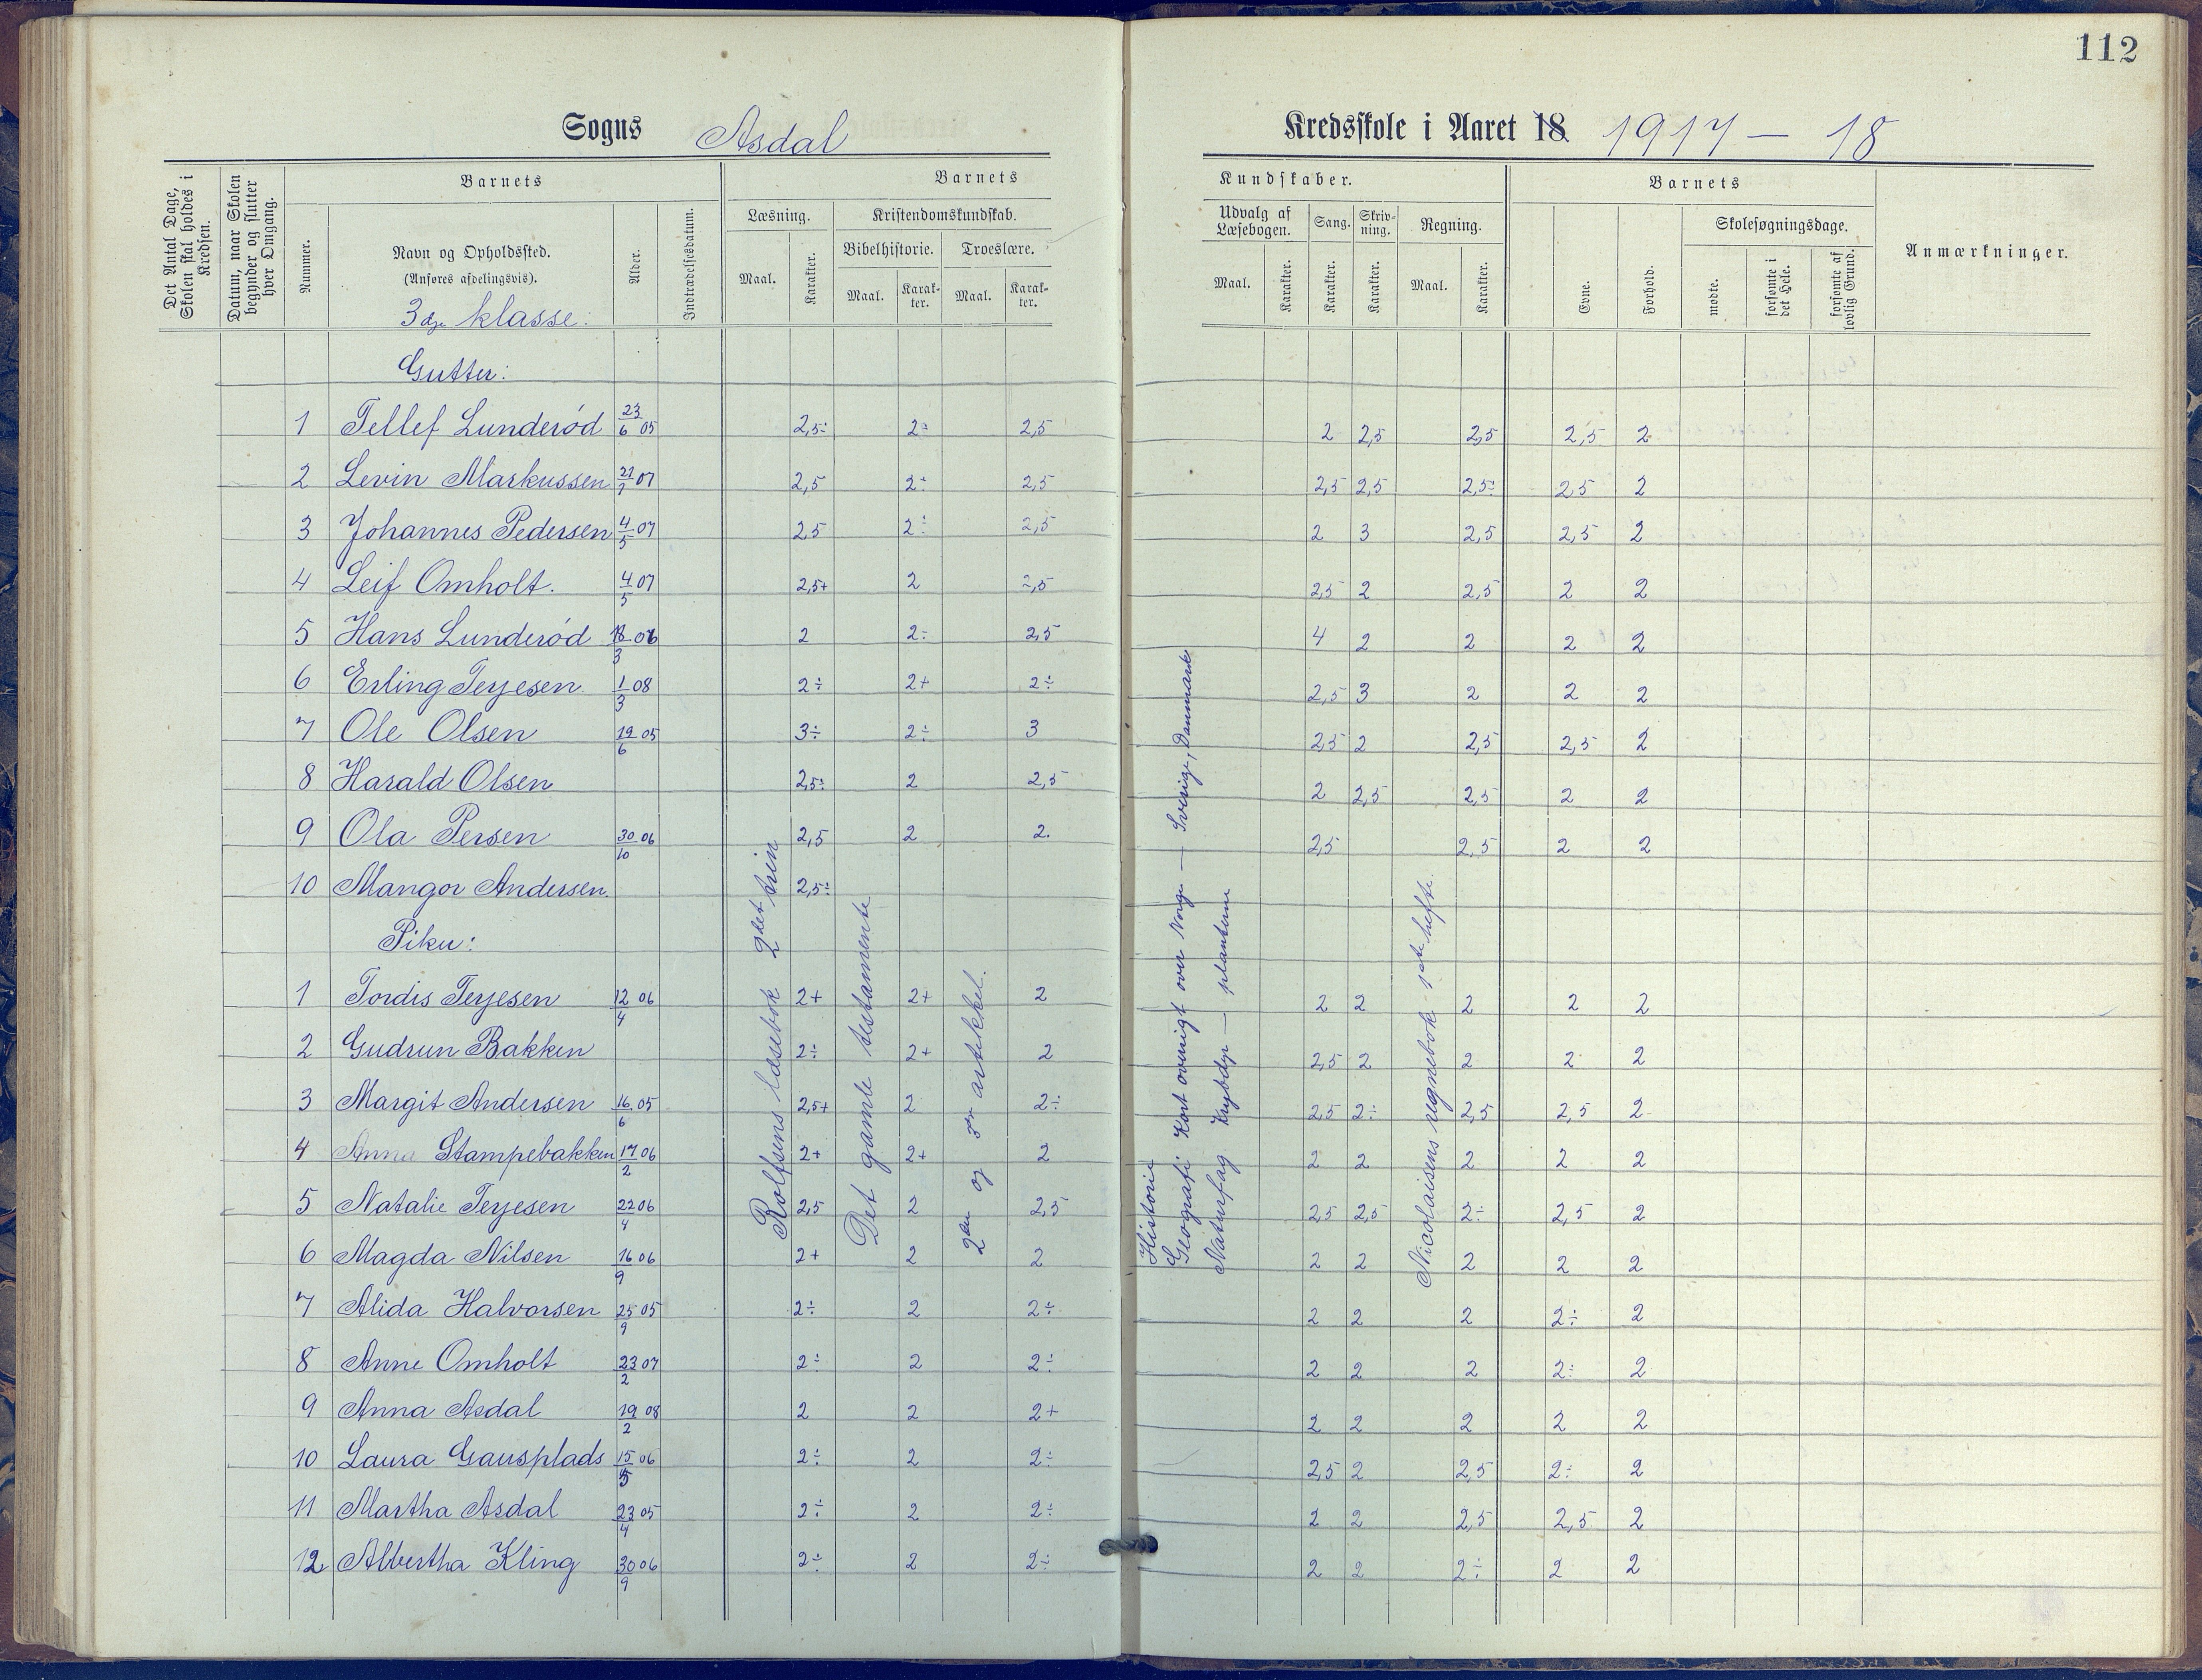 112
Sogns Asdal Kredsskole i Aaret 18 1917 — 18
Det Antal Dage, Skolen skal holdes i Kredsen.
Datum, naar Skolen begynder og slutter hver Omgang.
Barnets
Nummer.
Navn og Opholdssted.
(Anføres afdelingsvis).
3dje klasse:
Alder.
Indtrædelsesdatum.
Barnets Kundskaber.
Læsning.
Maal. Karakter.
Kristendomskundskab.
Bibelhistorie. Troeslære.
Maal. Karakter. Maal. Karakter.
Udvalg af Læsebogen.
Maal. Karakter.
Sang. Karakter.
Skrivning. Karakter.
Regning.
Maal. Karakter.
Barnets
Evne. Forhold.
Skolesøgningsdage.
mødte. forsømte i det Hele. forsømte af lovlig Grund.
Anmærkninger.
Gutter:
1 Tellef Lunderød 23/6 05 2,5÷ 2÷ 2,5 2 2,5 2,5 2,5 2
2 Levin Markussen 07 2,5 2÷ 2,5 2,5 2,5 2,5÷ 2,5 2
3 Johannes Pedersen 4/5 07 2,5 2÷ 2,5 2 3 2,5 2,5 2
4 Leif Omholt. 4/5 07 2,5+ 2 2,5 2,5 2 2,5 2 2
5 Hans Lunderød 18/3 06 2 2÷ 2,5 4 2 2 2 2
6 Erling Terjesen 1/3 08 2÷ 2+ 2÷ 2,5 3 2 2 2
7 Ole Olsen 19/6 05 3÷ 2÷ 3 2,5 2 2,5 2,5 2
8 Harald Olsen 2,5÷ 2 2,5 2 2,5 2,5 2 2
9 Ola Persen 30/10 06 2,5 2 2. 2,5 2,5 2 2
10 Mangor Andersen. 2,5÷
Piker:
1 Tordis Terjesen 12/4 06 2+ 2+ 2 2 2 2 2 2
2 Gudrun Bakken 2÷ 2+ 2 2,5 2 2 2 2
3 Margit Andersen 16/6 05 2,5+ 2 2÷ 2,5 2÷ 2,5 2,5 2
4 Anna Stampebakken 17/2 06 2+ 2+ 2 2 2 2 2 2
5 Natalie Terjesen 22/4 06 2,5 2 2,5 2,5 2,5 2÷ 2,5 2
6 Magda Nilsen 16/9 06 2+ 2 2 2 2 2 2 2
7 Alida Halvorsen 25/9 05 2÷ 2 2÷ 2 2 2 2÷ 2
8 Anne Omholt 23/2 07 2÷ 2 2÷ 2 2 2 2÷ 2
9 Anna Asdal 19/2 08 2 2 2+ 2 2 2 2 2
10 Laura Gausplads 15/5 06 2÷ 2 2÷ 2,5 2 2,5 2÷ 2
11 Martha Asdal 23/4 05 2÷ 2 2÷ 2 2 2,5 2,5 2
12 Albertha Kling 30/9 06 2÷ 2 2÷ 2 2 2÷ 2 2
Rolfsens læsebok 2det trin
Det gamle testamente
2den og 3dje artikkel.
Historie
Geografi Kort oversigt over Norge — Sverige, Danmark
Naturfag Krybdyr — plantene
Nicolaisens regnebok 1ste hefte.